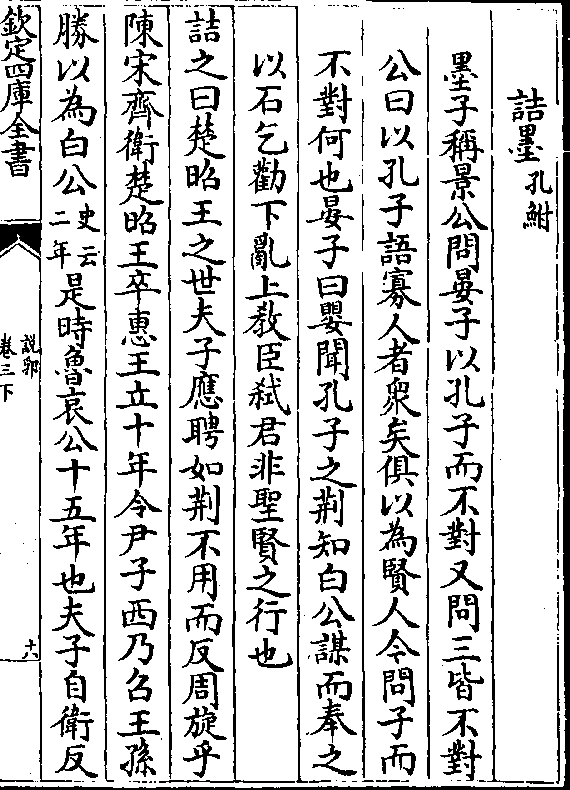 詰墨孔鮒
墨子稱景公問晏子以孔子而不對又問三皆不對
公曰以孔子語寡人者衆矣俱以為賢人今問子而
不對何也晏子曰嬰聞孔子之荆知白公謀而奉之
以石乞勸下亂上教臣弑君非聖賢之行也
詰之曰楚昭王之世夫子應聘如荆不用而反周旋乎
陳宋齊衛楚昭王卒惠王立十年令尹子西乃召王孫
勝以為白公史云二年是時魯哀公十五年也夫子自衛反
欽定四庫全書
說郛
卷三下
十六